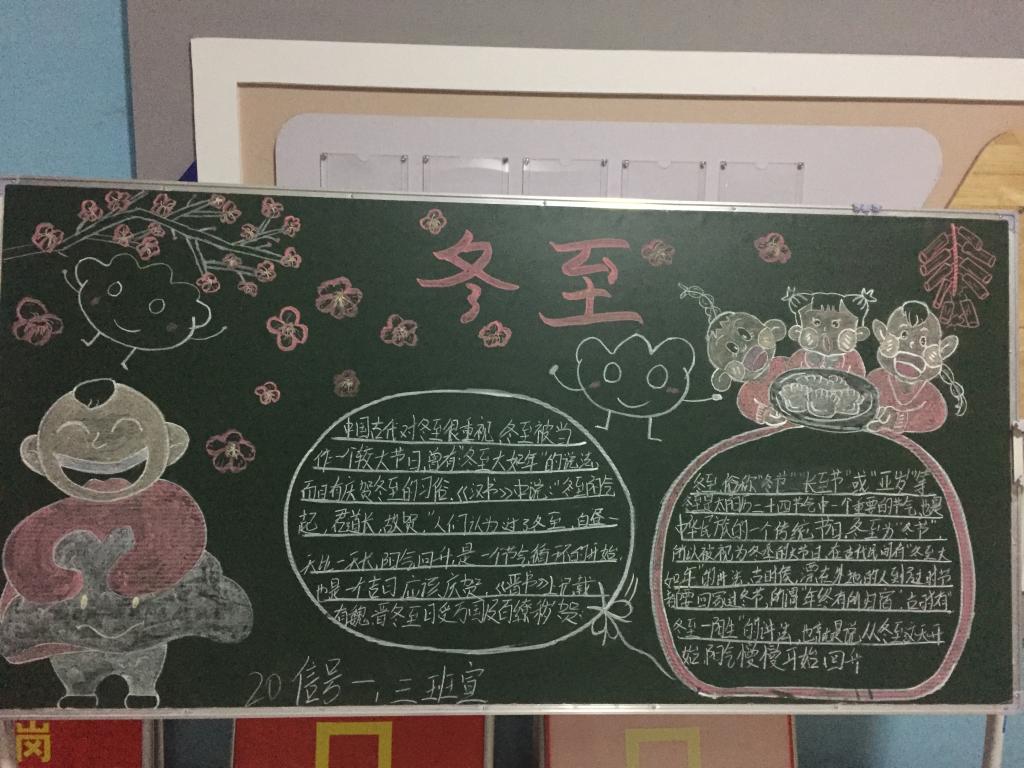 冬至
中国古代对冬至很重视,冬至被当
作一个较大节日,曾有"冬至大如年"的说法,
而且有庆贺冬至的习俗。《汉书》中说:"冬至阳气
起,君道长,故贺"人们认为过了冬至,白昼一
天比一天长,阳气回升,是一个节气循环的开始,
也是一个吉日应该庆贺,《晋书》上记载
有魏晋冬至日受万国及百僚称贺
冬至,俗称"冬节""长至节"或"亚岁"等
二十四节气中一个重要的节气,也是
中华民族的一个传统节日,冬至为"冬节"
所以被视为冬季的大节日,在古代民间有"冬至大
如年"的讲法,古时候,漂在外地的人到了这时节
都要回家过冬节,所谓年终有所归宿"古时有"
冬至一阳生"的讲法,也就是说,从冬至这天开
始,阳气慢慢开始回升
20信号一、三班宣
岗